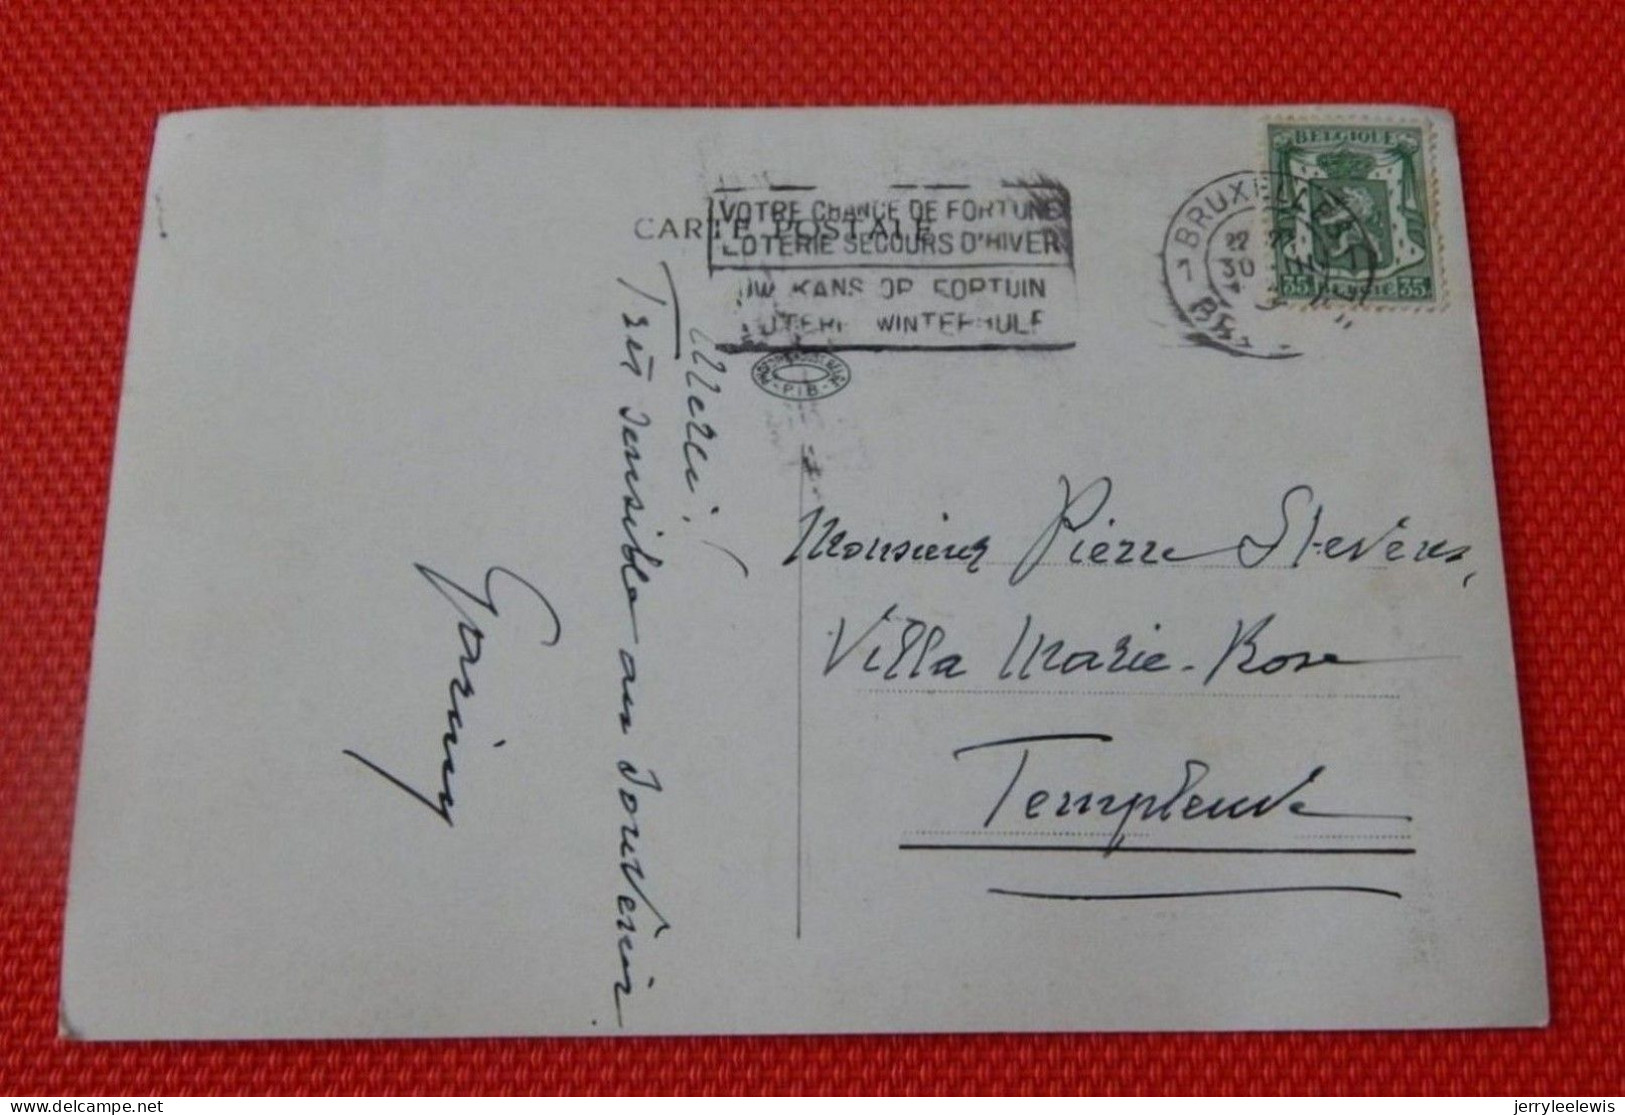 CARTE POSTALE
VOTRE CHANCE DE FORTUNE
LOTERIE SECOURS D'HIVER
UW KANS OP FORTUIN
LOTERIE WINTERHULP
BELGIQUE
35 BELGIE 35
1 BRUXELLES 1
30 III
P.I.B.
Merci!
Très sensible au souvenir
Monsieur Pierre Stevens,
Villa Marie-Rose
Templeuve
delcampe.net
jerryleelewis